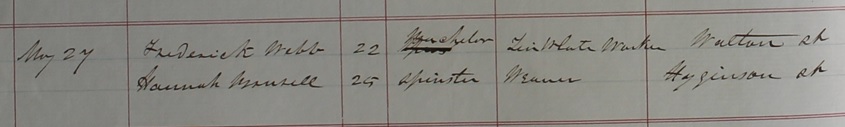 May 27 Frederick Webb 22 Bachelor Tin Plate Worker Walton st
Hannah 25 Spinster Weaver Higginson st